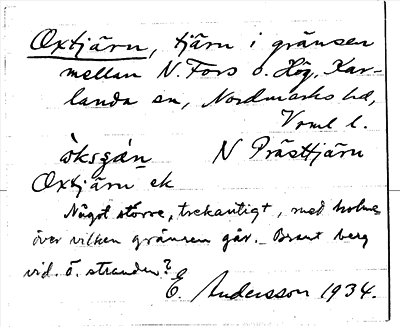 Oxtjärn, tjärn i gränsen
mellan N. Fors o. Hög, Kar-
landa sn, Nordmarks hd,
Vrml l.
òksʒán N Prästtjärn
Oxtjärn ek
Något större, trekantigt, med holme
över vilken gränsen går. Brant berg
vid ö. stranden?
E. Andersson 1934.